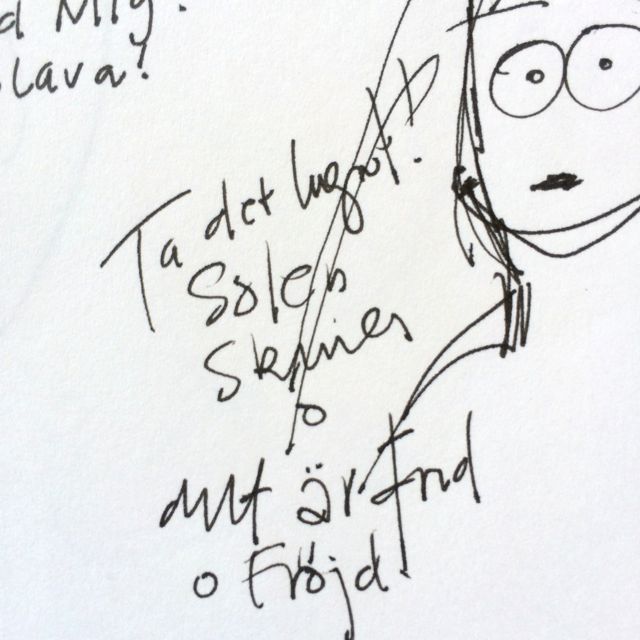 Mig.
slava!
Ta det lugnt!!
Solen
skiner
o
allt är frid
o Fröjd!